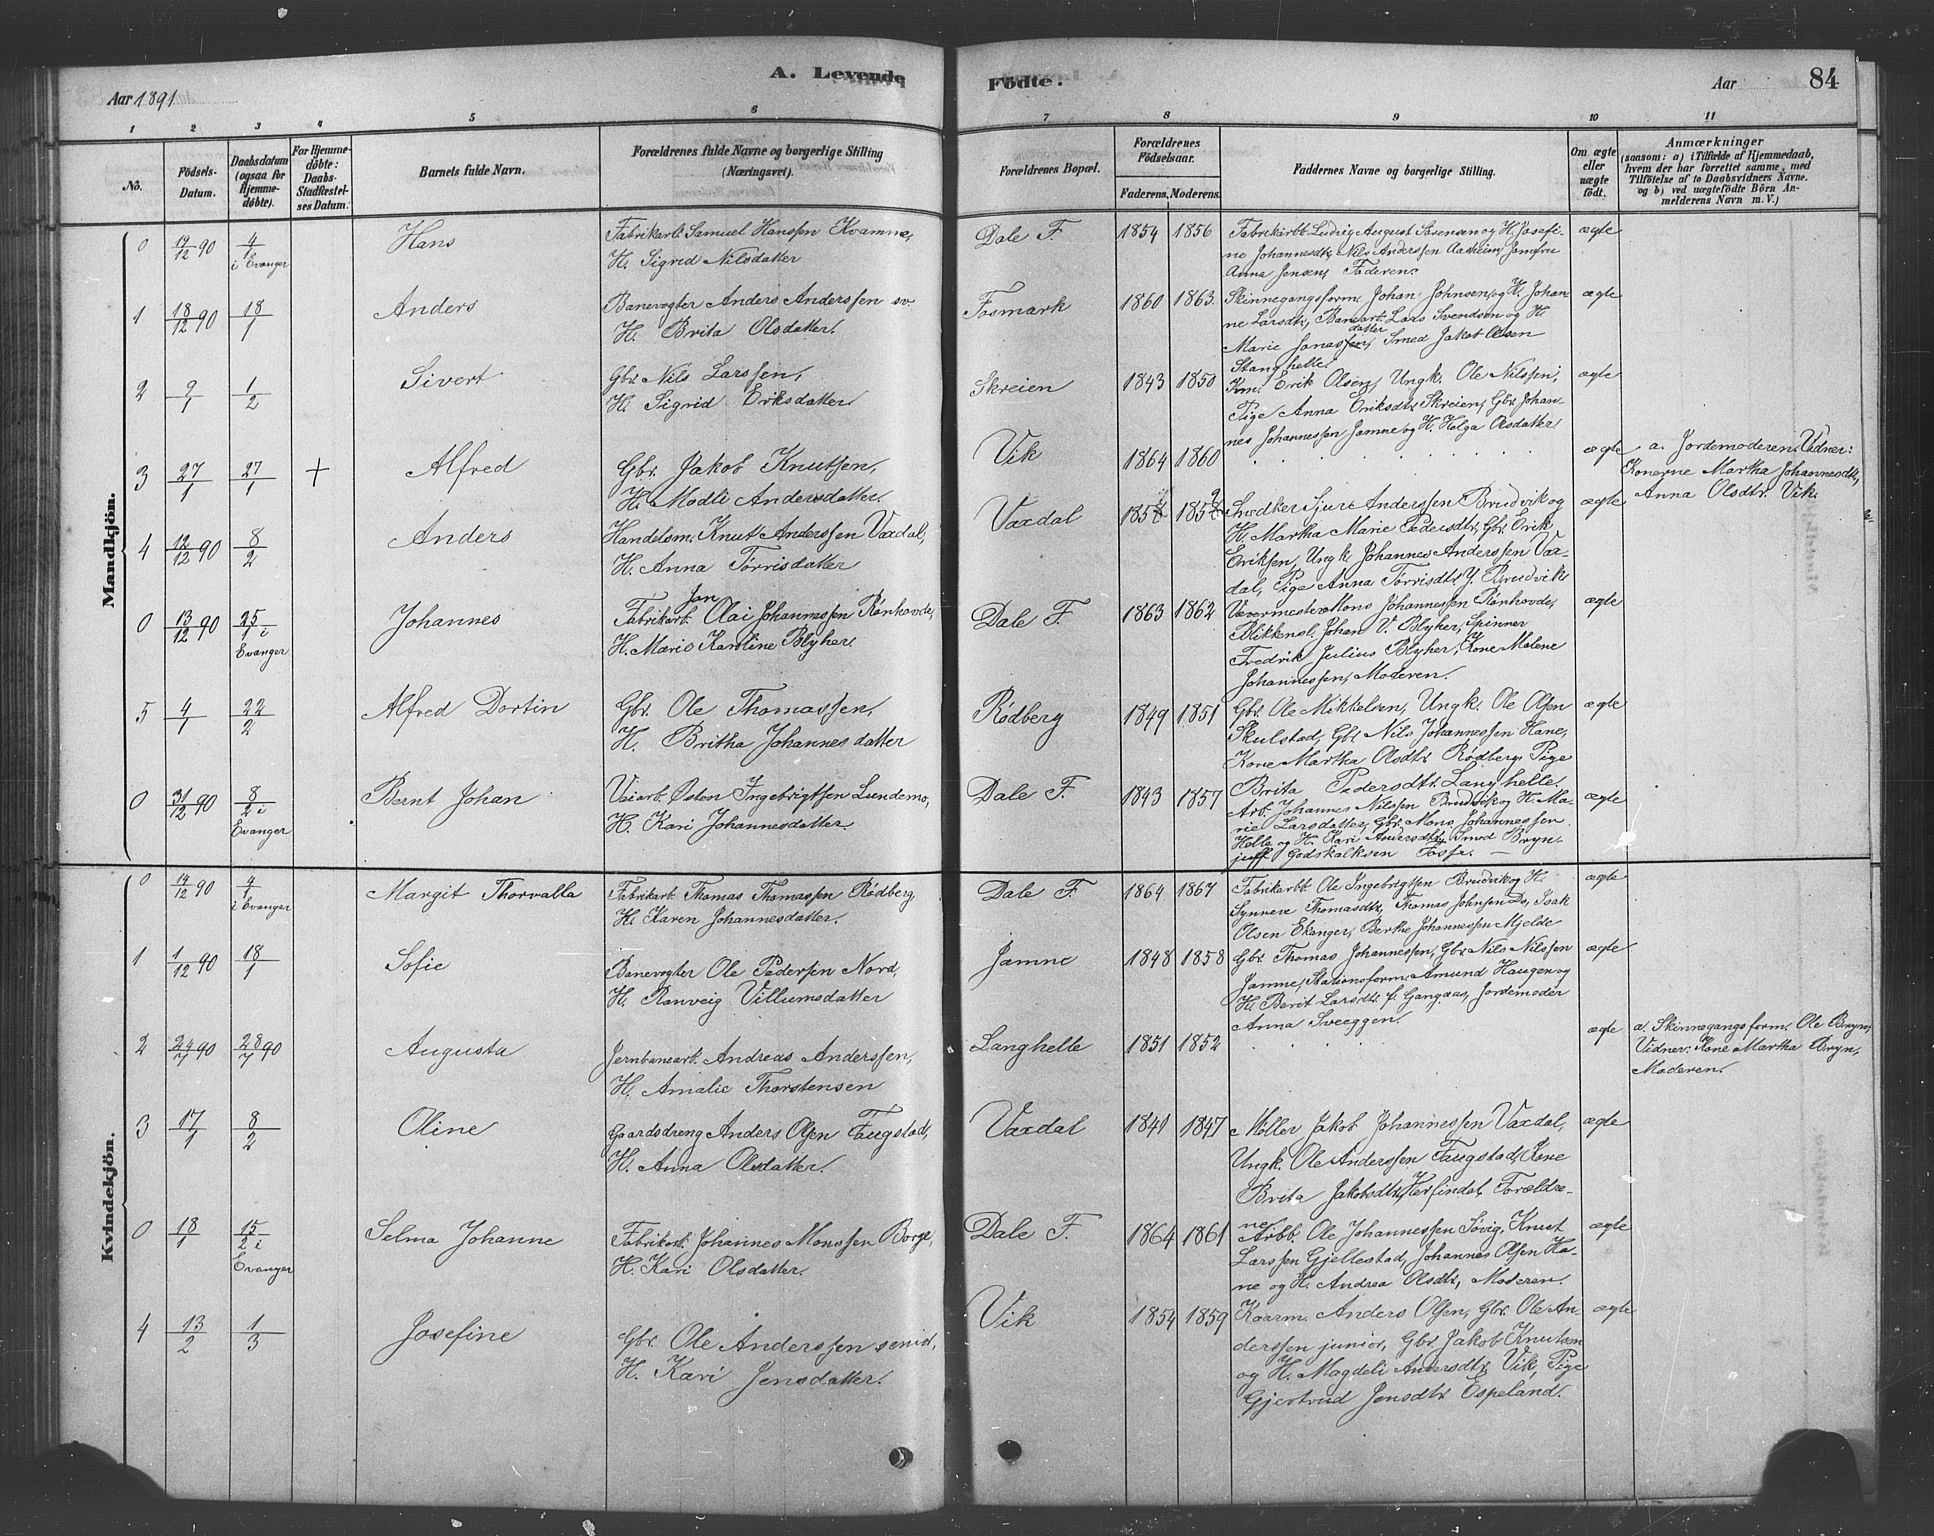 A. Levende
Födte.
Aar 1891
Aar
84
1 2 3 4 5 6 7 8 9 10 11
No.
Födsels-
Datum.
Daabsdatum
(ogsaa för
Hjemme-
döbte).
For Hjemme-
döbte:
Daabs-
Stadfæstel-
ses Datum.
Barnets fulde Navn.
Forældrenes fulde Navne og borgerlige Stilling
(Næringsvei).
Forældrenes Bopæl.
Forældrenes
Födselsaar.
Faderens.
Moderens.
Faddernes Navne og borgerlige Stilling.
Om ægte
eller
uægte
födt.
Anmærkninger
(saasom: a) i Tilfælde af Hjemmedaab,
hvem der har forrettet samme, med
Tilföielse af to Daabsvidners Navne.
og b) ved uægtefödte Börn An-
melderens Navn m. V.)
Mandkjön.
0 19/12 90 4/1 i Evanger Hans
Fabrikarb. Samuel Hanssen Kvamme,
H. Sigrid Nilsdatter
Dale F. 1854 1856
Fabrikarbb. Ludvig August Sørensen og H. Josefi-
ne Johannesdtr, Nils Anderssen Aasheim, Jomfru
Anna Jensen, Faderen.
ægte
1 18/12 90 18/1 Anders
Banevogter Anders Anderssen
H. Brita Olsdatter.
Fosmark 1860 1863.
Skinnegangsform. Johan Johnsen og H. Johan-
ne Larsdtr, Banearb. Lars Svendsen og H.
Marie Jonasdatter, Smed Jakob Olsen
Stanghelle.
ægte
2 9/1 1/2 Sivert
Gbr. Nils Larssen,
H. Sigrid Eriksdatter
Skreien 1843 1850
Km. Erik Olsen, Ungk. Ole Nilssen,
Pige Anna Eriksdtr Skreien, Gbr. Johan-
nes Johannessen Jamne og H. Helga Olsdatter
ægte
3 27/1 27/1 + Alfred
Gbr. Jakob Knutsen,
H. Modli Andersdatter.
Vik 1864 1860
ægte
a. Jordemoderen. Vidner:
Konerne Martha Johannesdtr,
Anna Olsdtr. Vik.
4 12/12 90 8/2 Anders
Handelsm. Knut Anderssen Vaxdal,
H. Anna Torrisdatter
Vaxdal
Snedker Sjur Anderssen Brudvik og
H. Martha Marie Pedersdtr, Gbr. Erik
Eriksen, Ungk. Johannes Anderssen Vax-
dal, Pige Anna Torrisdtr Y. Brudvik
ægte
0 13/12 90 25/1 i Evanger Johannes
Fabrikarb. Jan Olai Johannessen Rønhovde,
H. Marie Karoline Blyher.
Dale F. 1863 1862
Vævermester Mons Johannessen Rønhovde,
Blikkensl. Johan V. Blyher, Spinner
Fredrik Julius Blyher, Kone Malene
Johannessen, Moderen.
ægte
5 4/1 22/2 Alfred Dortin
Gbr. Ole Thomassen,
H. Britha Johannesdatter
Rødberg 1849 1851
Gbr. Ole Mikkelsen, Ungk. Ole Olsen
Skulstad, Gbr. Nils Johannessen Hane,
Kone Martha Olsdtr Rødberg, Pige
Brita Pedersdtr. Langhelle
ægte
0 31/12 90 8/2 i Evanger Bernt Johan
Veiarb. Østen Ingebrigtsen Lundemo,
H. Kari Johannesdatter.
Dale F. 1843 1857
Arb. Johannes Nilssen Brudvik og H. Ma-
rie Larsdatter, Gbr. Mons Johannessen
Helle og H. Kari Andersdtr, Smed Bryn-
julf Godskalksen Fosse.
ægte
Kvindekjön.
0 19/12 90 4/1 i Evanger Margit Thorvalla
Fabrikarb. Thomas Thomassen Rødberg,
H. Karen Johannesdatter.
Dale F. 1864 1867
Fabrikarbb. Ole Ingebrigtsen Brudvik og H.
Synneve Thomasdtr, Thomas Johnsen Do, Isak
Olsen Ekanger, Berthe Johannessen Mjelde
ægte
1 1/12 90 18/1 Sofie
Banevogter Ole Pedersen Nord,
H. Ranveig Villumsdatter
Jamne 1848 1858
Gbr. Thomas Johannessen, Gbr. Nils Nilssen
Jamne, Stationsform. Amund Haugen og
H. Berit Larsdtr f. Gangaas, Jordemoder
Anna Sveeggen.
ægte
2 24/7 90 28/7 90 Augusta
Jernbanearb. Andreas Anderssen,
H. Amalie Thorstensen
Langhelle 1851 1852
ægte
a. Skinnegangsform. Ole Bryn,
Vidner: Kone Martha Bryn,
Moderen.
3 17/1 8/2 Oline
Gaardsdreng Anders Olsen Faugstad,
H. Anna Olsdatter.
Vaxdal 1841 1847
Møller Jakob Johannessen Vaxdal,
Ungk. Ole Anderssen Faugstad, Kone
Brita Jakobsdtr, Herfindal, Forældre-
ne
ægte
0 18/1 15/2 i Evanger Selma Johanne
Fabrikarb. Johannes Monssen Borge,
H. Kari Olsdatter.
Dale F. 1864 1861
Arbb. Ole Johannessen Søvig, Knut
Larssen Gjellestad, Johannes Olsen Ha-
ne og H. Andrea Olsdtr, Moderen.
ægte
4 13/2 1/3 Josefine
Gbr. Ole Anderssen senior,
H. Kari Jensdatter.
Vik 1854 1859
Kaarm. Anders Olsen, Gbr. Ole An-
derssen junior, Gbr Jakob Knutsen
og H. Magdeli Andersdtr Vik, Pige
Gjertrud Jensdtr. Espeland.
ægte